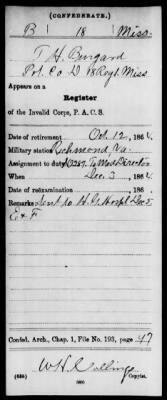 (CONFEDERATE.)
B 18 Miss.
T H Burgard
Pvt. Co D 18 Regt Miss
Appears on a
Register
of the Invalid Corps, P. A. C. S.
Date of retirement Oct 12, 1864.
Military station Richmond, Va.
Assignment to duty To Med. Director
When Dec. 3, 1864.
Date of reëxamination , 186 .
Remarks Sent to Hospl Dec 5
E & F
Conf. Arch., Chap. 1, File No. 193, page 47
W H Collins
Copyist.